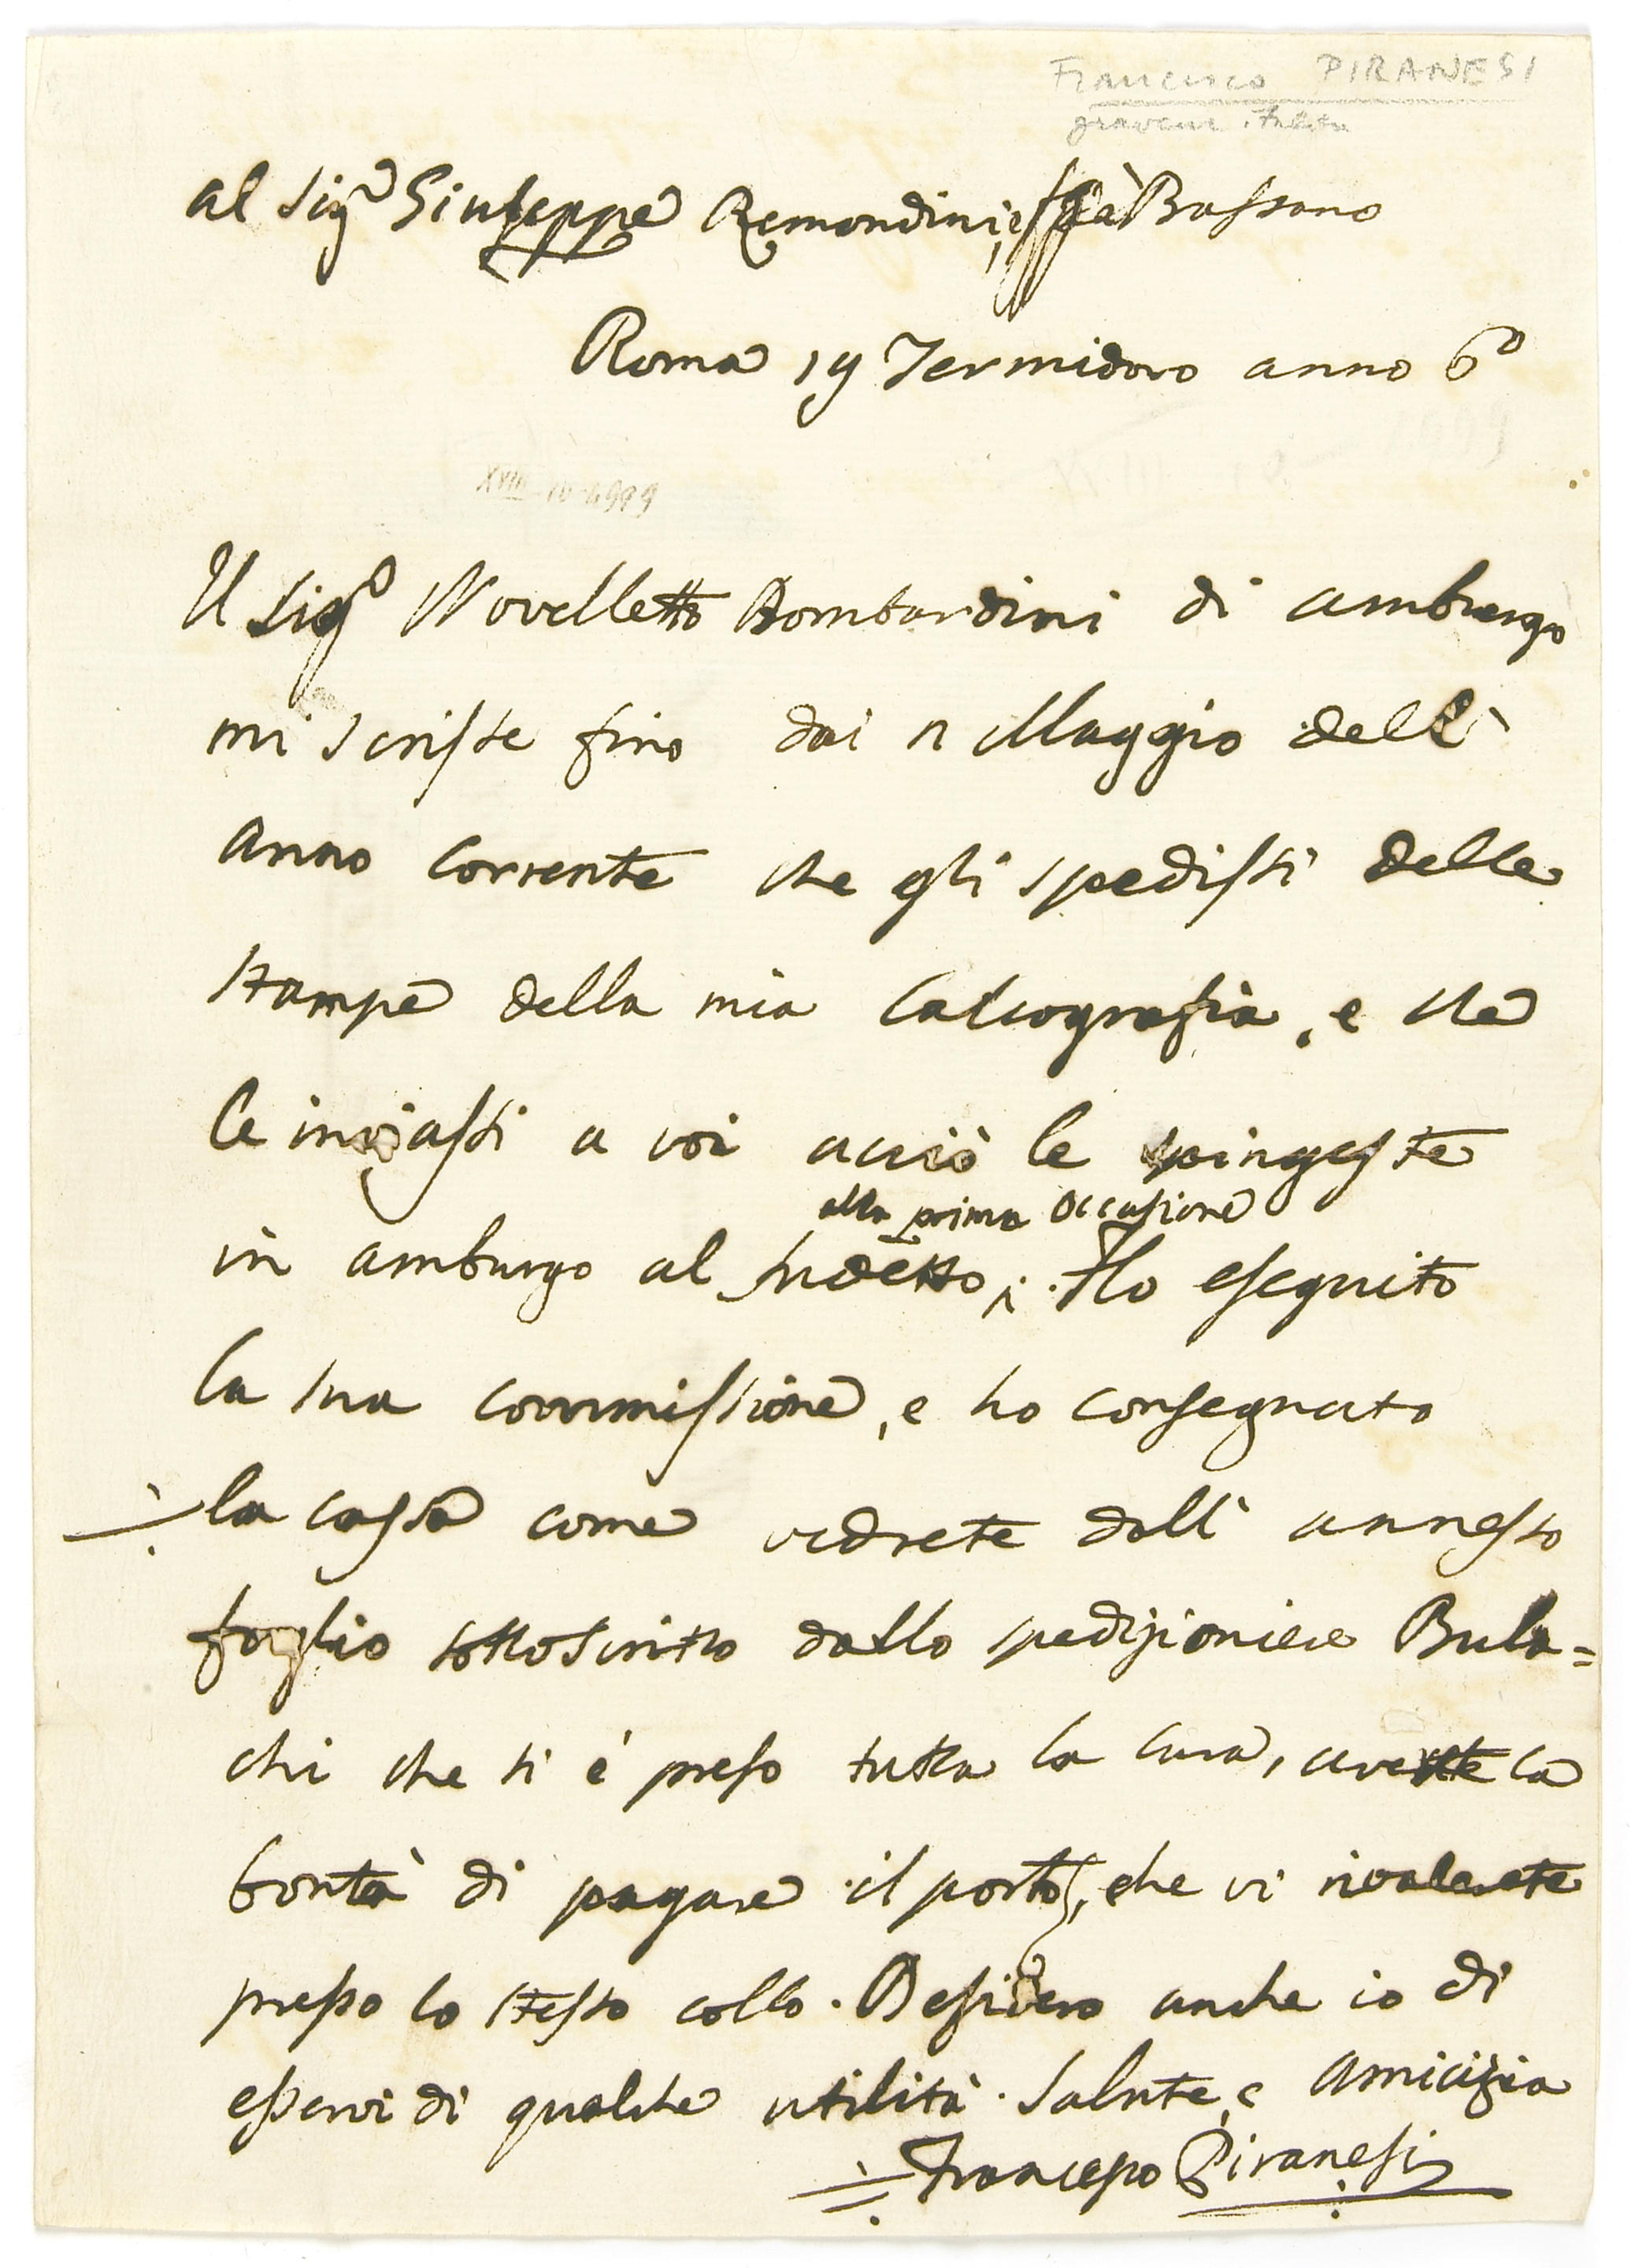 Francesco PIRANESI
graveur italien
al Sig.r Giuseppe Remondini, à Bassano
Roma 19 Termidoro anno 6º
XVIII-10-4999
Il Sig.r Novelletto Bombardini di amburgo
mi scriste fino dai 11 Maggio dell'
anno corrente che gli spedisti delle
stampe della mia Calcografia, e che
le inviasti a voi acciò le spingeste
alla prima occasione
in amburgo al sudetto; Ho eseguito
la sua commissione, e ho consegnato
la cassa come vedrete dall' annesso
foglio sottoscritto dallo spedizioniere Bula=
chi che si è preso tutta la cura, avente la
bontà di pagare il porto, che vi rivalerete
presso lo stesso collo. Desidero anche io di
esservi di qualche utilità. Salute, e amicizia
Francesco Piranesi